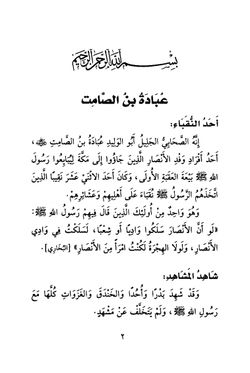 بِسْمِ اللَّهِ الرَّحْمَنِ الرَّحِيمِ
عُبَادَةُ بْنُ الصَّامِتِ
أَحَدُ النُّقَبَاءِ:
إِنَّهُ الصَّحَابِيُّ الجَلِيلُ أَبُو الوَلِيدِ عُبَادَةُ بْنُ الصَّامِتِ ﷺ،
أَحَدُ أَفْرَادِ وَفْدِ الأَنْصَارِ الَّذِينَ جَاؤُوا إِلَى مَكَّةَ لِيُبَايِعُوا رَسُولَ
اللهِ ﷺ بَيْعَةَ العَقَبَةِ الأُولَى، وَكَانَ أَحَدَ الاثْنَيْ عَشَرَ نَقِيبًا الَّذِينَ
اتَّخَذَهُمُ الرَّسُولُ ﷺ نُقَبَاءَ عَلَى أَهْلِيهِمْ وَعَشَائِرِهِمْ.
وَهُوَ وَاحِدٌ مِنْ أُولَئِكَ الَّذِينَ قَالَ فِيهِمْ رَسُولُ اللهِ ﷺ:
«لَو أَنَّ الأَنْصَارَ سَلَكُوا وَادِيًا أَو شِعْبًا، لَسَلَكْتُ فِي وَادِي
الأَنْصَارِ، وَلَولَا الهِجْرَةُ لَكُنْتُ امْرَأً مِنَ الأَنْصَارِ» [البخاري].
شَاهِدُ المَشَاهِدِ:
وَقَدْ شَهِدَ بَدْرًا وَأُحُدًا وَالخَنْدَقَ وَالغَزَوَاتِ كُلَّهَا مَعَ
رَسُولِ اللهِ ﷺ، وَلَمْ يَتَخَلَّفْ عَنْ مَشْهَدٍ.
٢